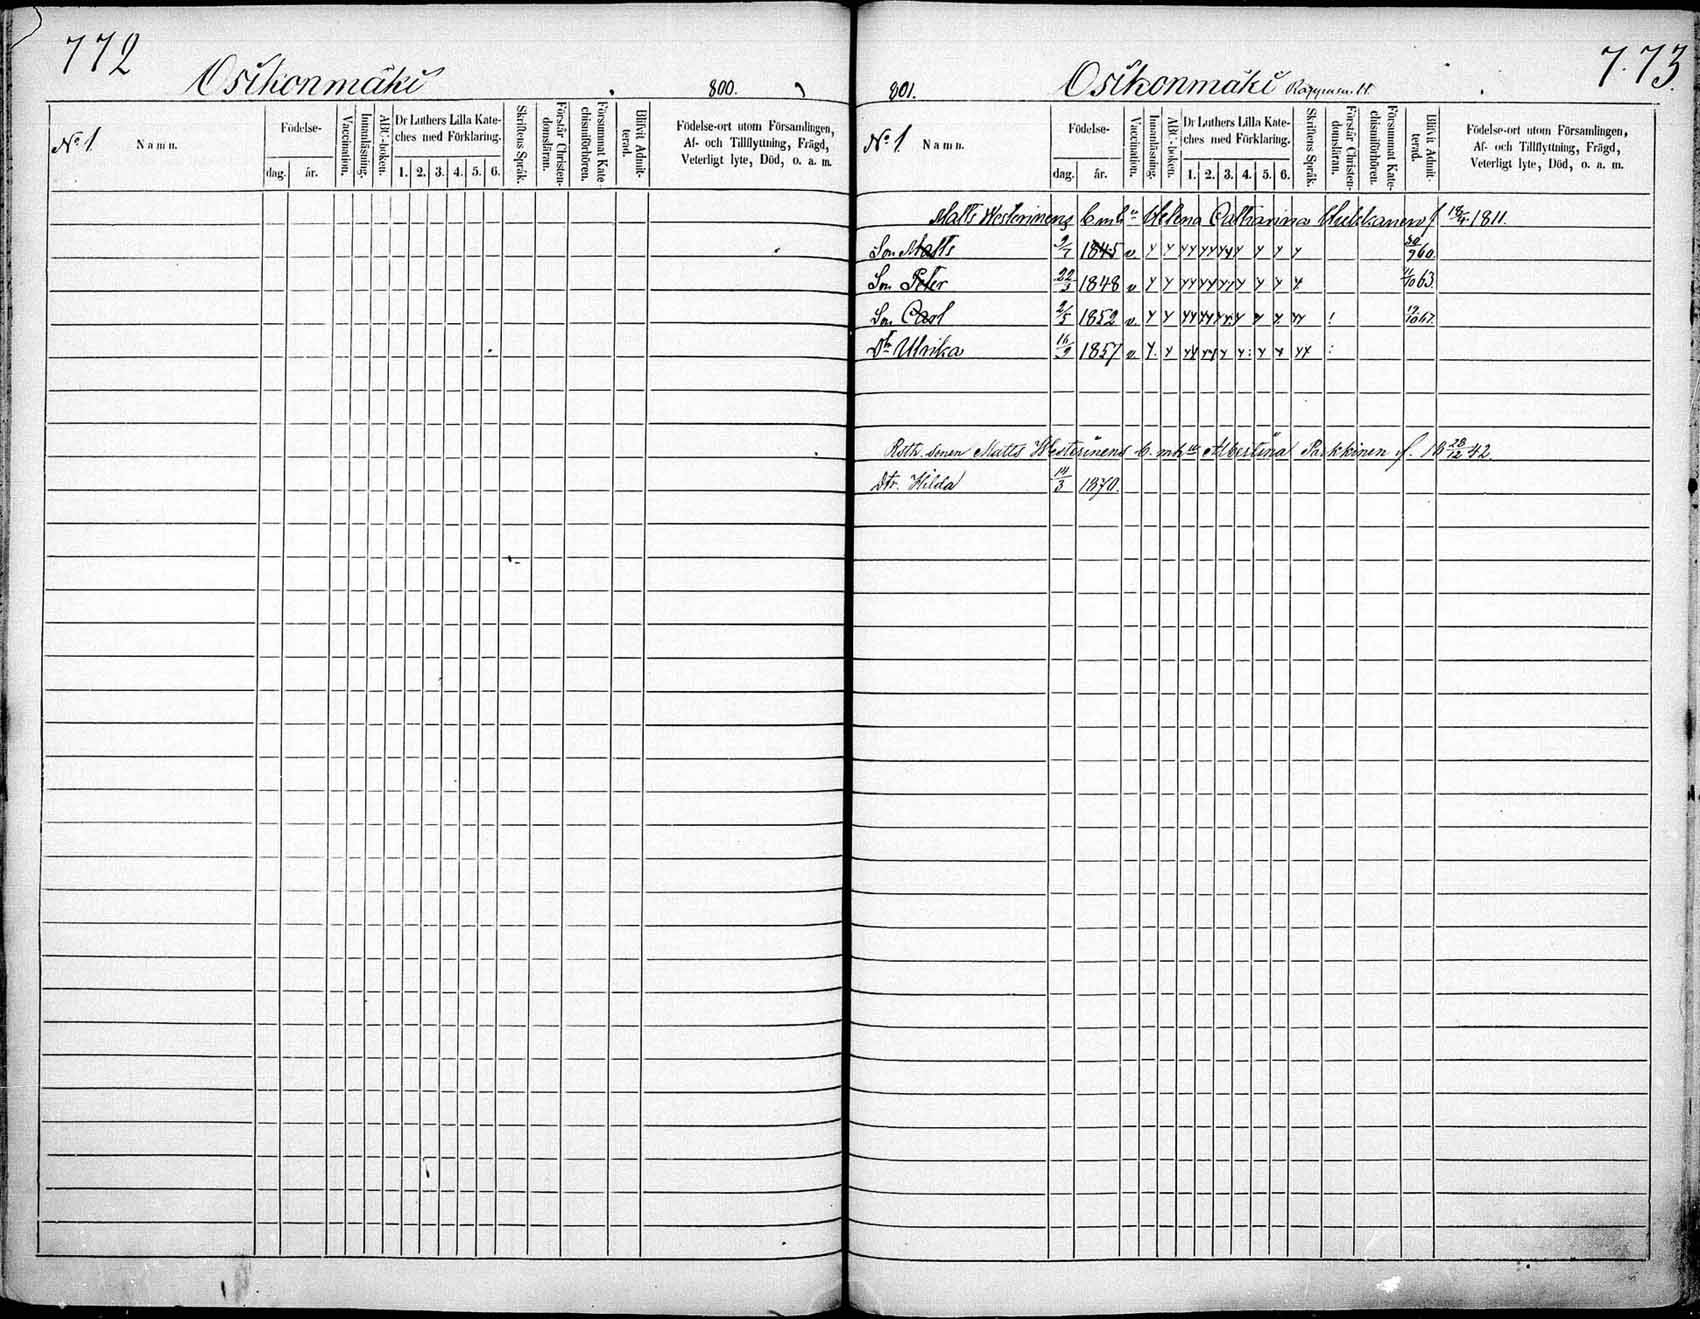 772
Osikonmäki
800.
No 1
Namn.
Födelse-
dag.
år.
Vaccination.
Innanläsning.
ABC-boken.
Dr Luthers Lilla Kate-
ches med Förklaring.
1. 2. 3. 4. 5. 6.
Skriftens Språk.
Förstår Christen-
domsläran.
Försummat Kate-
chismiförhören.
Blifvit Admit-
terad.
Födelse-ort utom Församlingen,
Af- och Tillflyttning, Frägd,
Veterligt lyte, Död, o. a. m.
7.73.
801.
Osikonmäki
No 1
Namn.
Födelse-
dag.
år.
Vaccination.
Innanläsning.
ABC-boken.
Dr Luthers Lilla Kate-
ches med Förklaring.
1. 2. 3. 4. 5. 6.
Skriftens Språk.
Förstår Christen-
domsläran.
Försummat Kate-
chismiförhören.
Blifvit Admit-
terad.
Födelse-ort utom Församlingen,
Af- och Tillflyttning, Frägd,
Veterligt lyte, Död, o. a. m.
Matts Westerinens Helena Catharina Hukkanen f 1811.
Son Matts 2/7 1845 v 60
Son Peter 22/3 1848 v 63.
Son Carl 2/5 1852 v. 67.
Dtr Ulrika 16/9 1857 v
sonen Matts Westerinens Albertina Parkkinen f. 18 28/12 42.
Dtr. Hilda 14/3 1870.